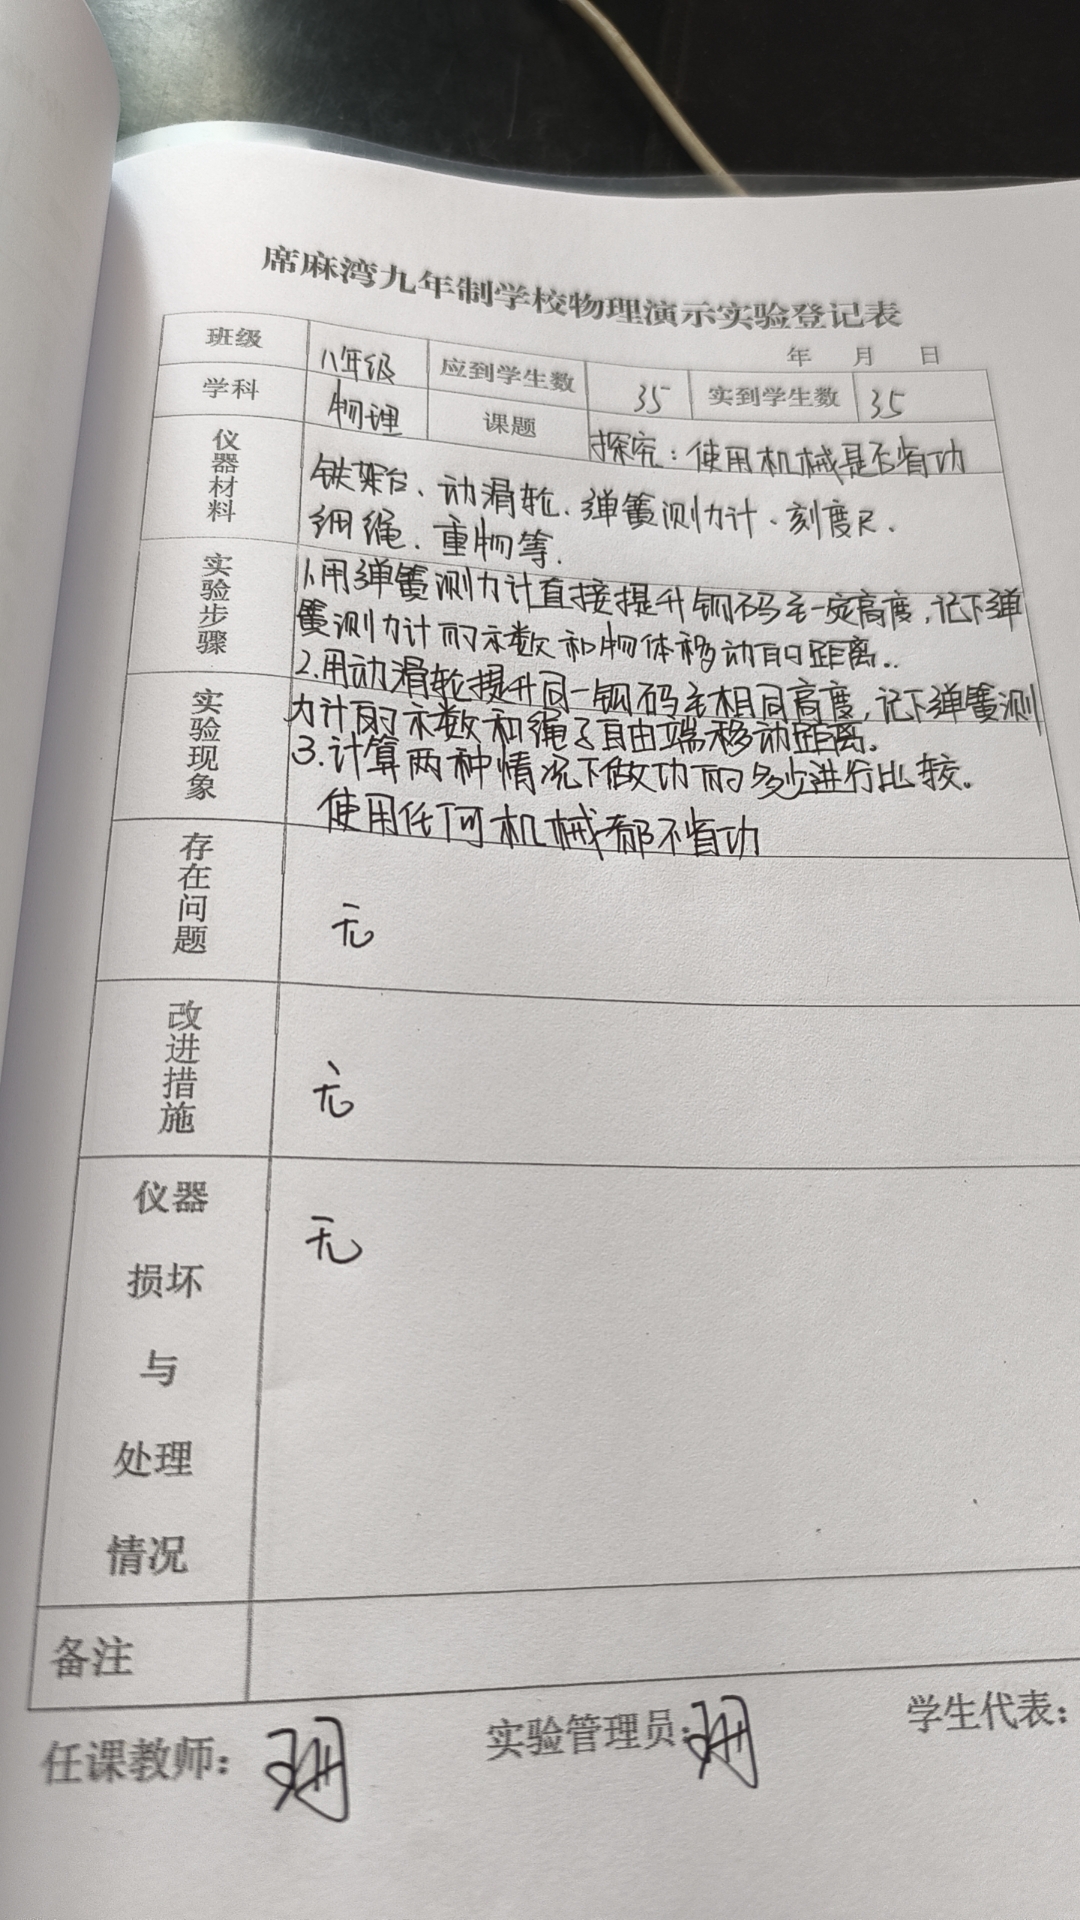 席麻湾九年制学校物理演示实验登记表
年 月 日
班级 八年级 应到学生数 35 实到学生数 35
学科 物理 课题 探究：使用机械是否省功
仪器材料 铁架台、动滑轮、弹簧测力计、刻度尺、
细绳、重物等.
实验步骤 1.用弹簧测力计直接提升钩码至一定高度，记下弹
簧测力计的示数和物体移动的距离..
2.用动滑轮提升同一钩码至相同高度，记下弹簧测
实验现象 力计的示数和绳子自由端移动距离。
3.计算两种情况下做功的多少进行比较。
使用任何机械都不省功
存在问题 无
改进措施 无
仪器 无
损坏
与
处理
情况
备注
任课教师： 实验管理员： 学生代表：